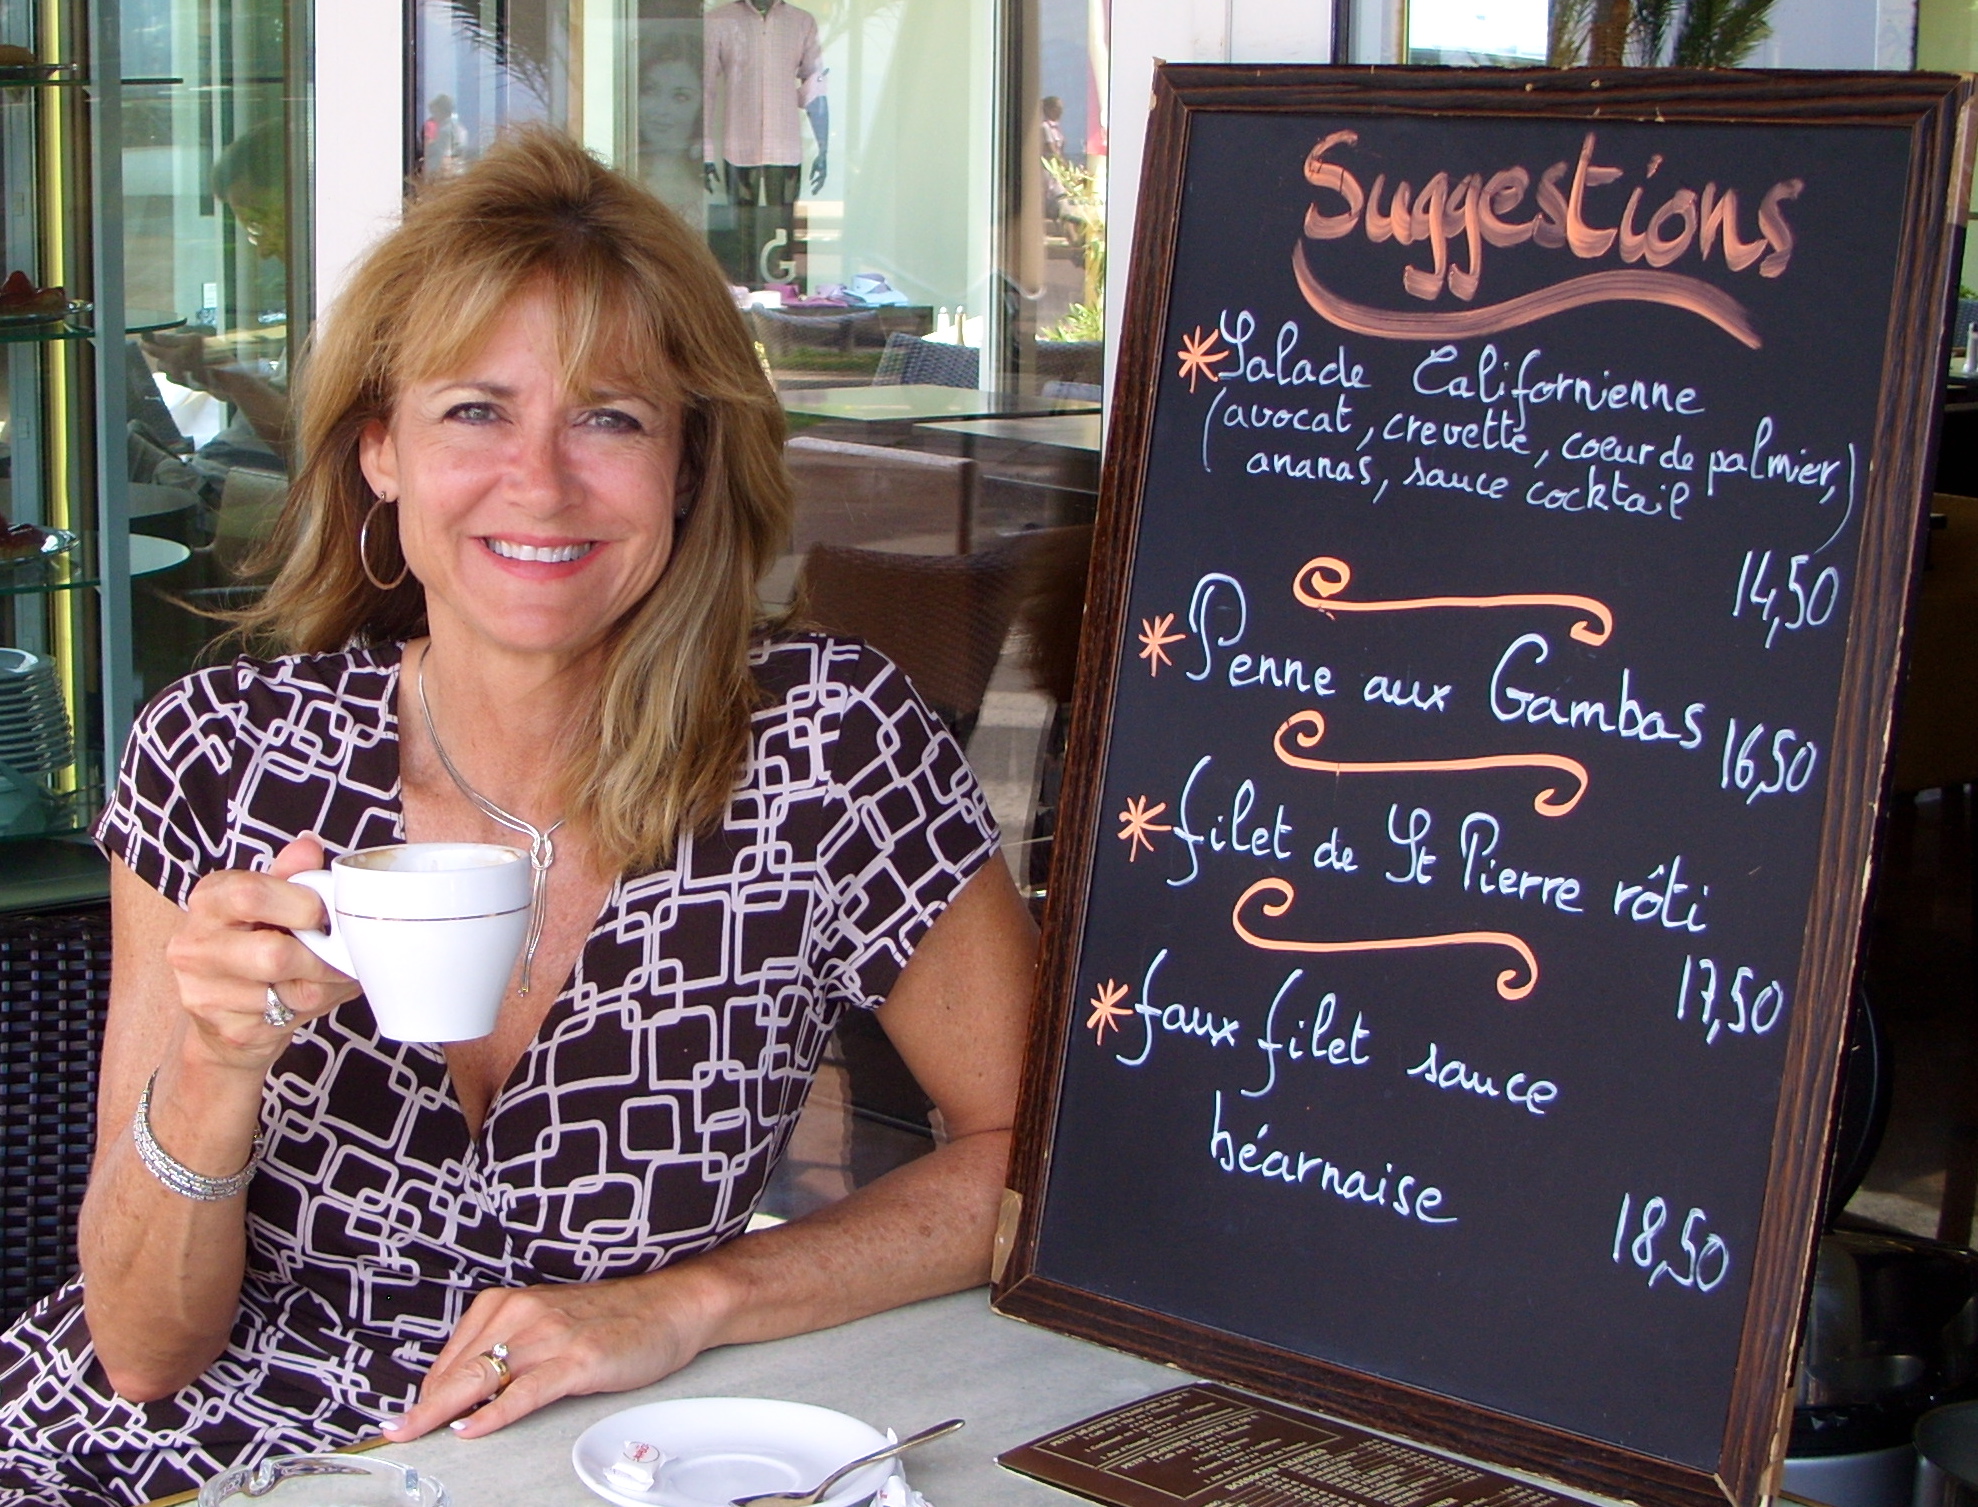 Suggestions
Salade Californienne
(avocat, crevette, coeur de palmier,
ananas, sauce cocktail)
14,50
Penne aux Gambas 16,50
filet de St Pierre rôti
17,50
faux filet sauce
béarnaise
18,50
G